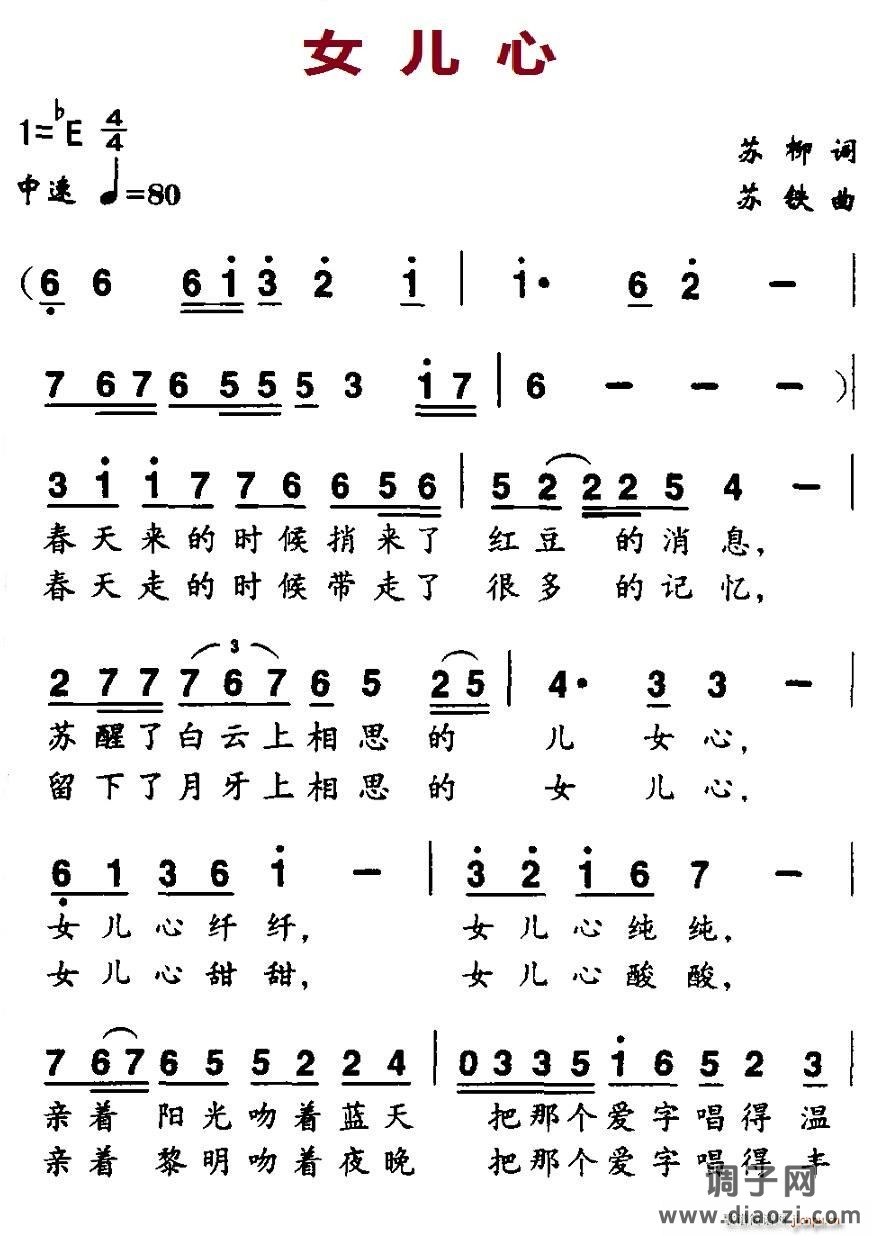 女儿心
1=♭E 4/4
苏柳词
中速 ♩=80
苏铁曲
(6 6 6 1 3 2 1 | 1· 6 2 — |
7 6 7 6 5 5 5 3 1 7 | 6 — — — )|
3 1 1 7 7 6 6 5 6 | 5 2 2 2 5 4 — |
春天来的时候捎来了 红豆 的消息,
春天走的时候带走了 很多 的记忆,
3
2 7 7 7 6 7 6 5 2 5 | 4· 3 3 — |
苏醒了白云上相思的 儿 女心,
留下了月牙上相思的 女 儿心.
6 1 3 6 1 — | 3 2 1 6 7 — |
女儿心纤纤, 女儿心纯纯,
女儿心甜甜, 女儿心酸酸,
7 6 7 6 5 5 2 2 4 | 0 3 3 5 1 6 5 2 3 |
亲着 阳光吻着蓝天 把那个爱字唱得温
亲着 黎明吻着夜晚 把那个爱字唱得丰
调子网
www.diaozi.com